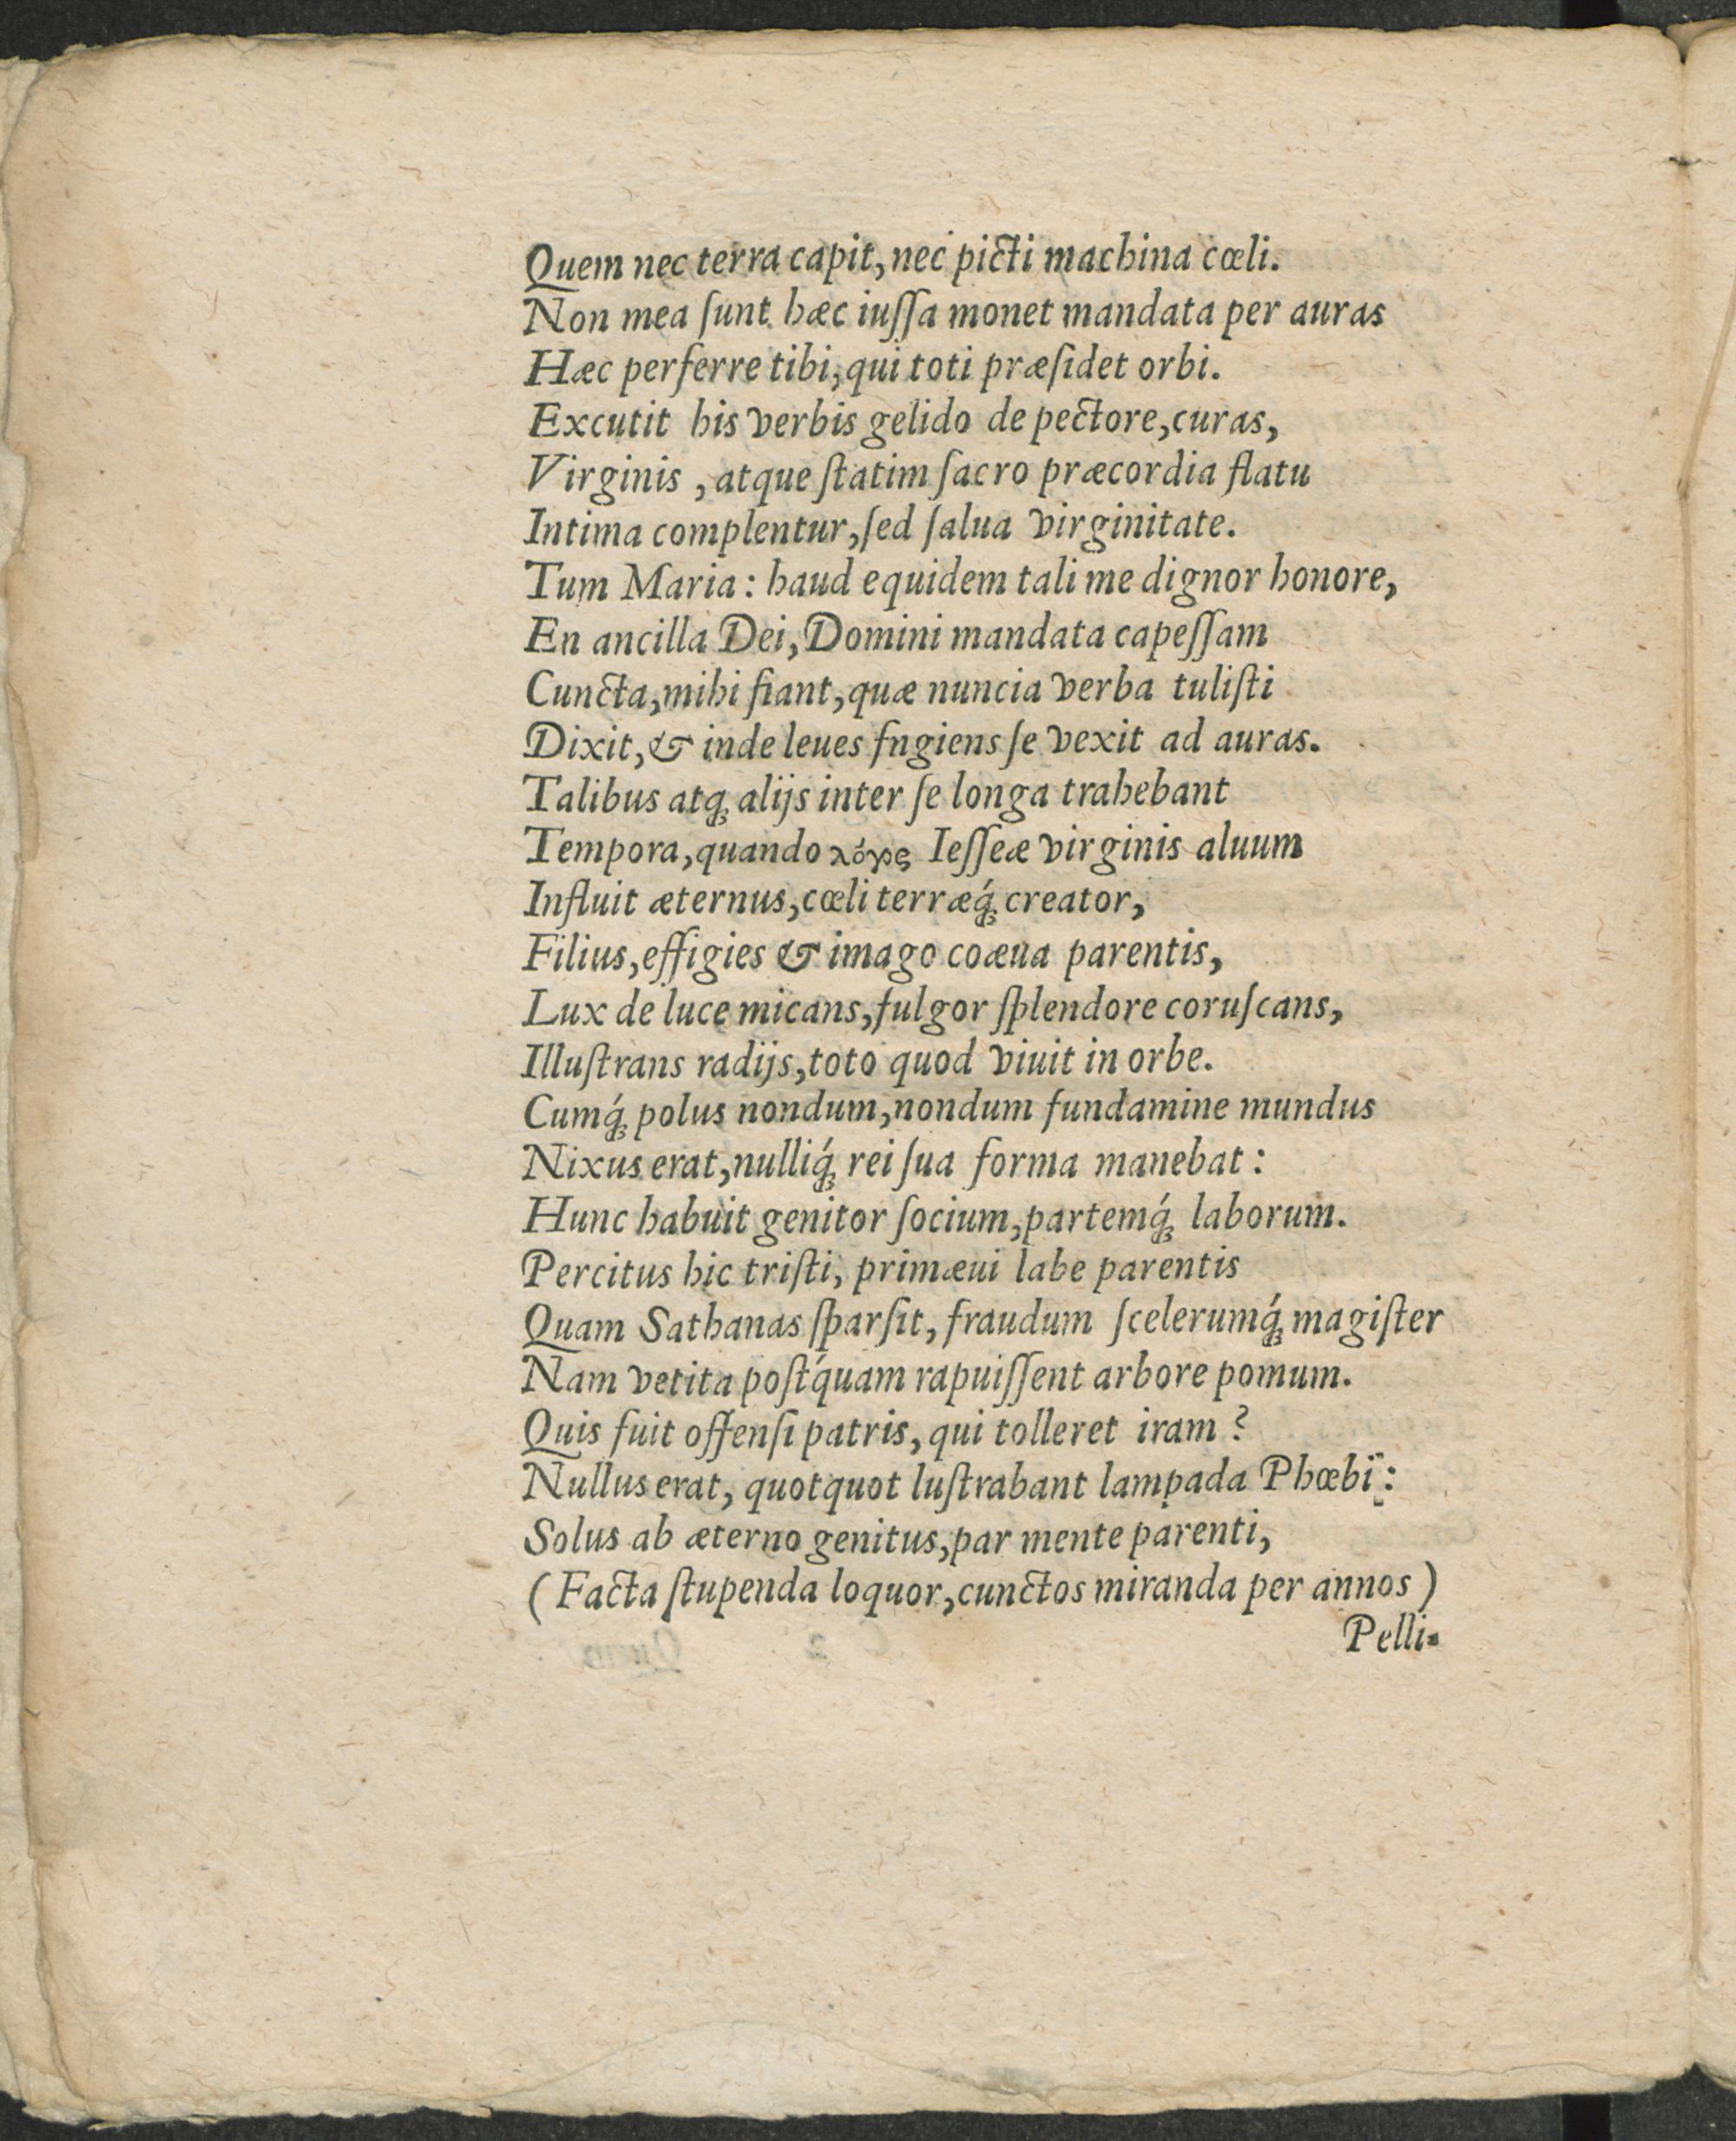 Quem nec terra capit, nec picti machina cœli.
Non mea ſunt hæc iuſſa monet mandata per auras
Hæc perferre tibi, qui toti præſidet orbi.
Excutit his verbis gelido de pectore, curas,
Virginis , atque ſtatim ſacro præcordia flatu
Intima complentur, ſed ſalua virginitate.
Tum Maria: haud equidem tali me dignor honore,
En ancilla Dei, Domini mandata capeſſam
Cuncta, mihi fiant, quæ nuncia verba tuliſti
Dixit, & inde leues fngiens ſe vexit ad auras.
Talibus atq́; alijs inter ſe longa trahebant
Tempora, quando λόγος Ieſſeæ virginis aluum
Influit æternus, cœli terræq́; creator,
Filius, effigies & imago coæua parentis,
Lux de luce micans, fulgor ſplendore coruſcans,
Illuſtrans radijs, toto quod viuit in orbe.
Cumq́; polus nondum, nondum fundamine mundus
Nixus erat, nulliq́; rei ſua forma manebat:
Hunc habuit genitor ſocium, partemq́; laborum.
Percitus hic triſti, primæui labe parentis
Quam Sathanas ſparſit, fraudum ſcelerumq́; magiſter
Nam vetita poſtq́uam rapuiſſent arbore pomum.
Quis fuit offenſi patris, qui tolleret iram?
Nullus erat, quotquot luſtrabant lampada Phœbi:
Solus ab æterno genitus, par mente parenti,
(Facta ſtupenda loquor, cunctos miranda per annos)
Pelli-